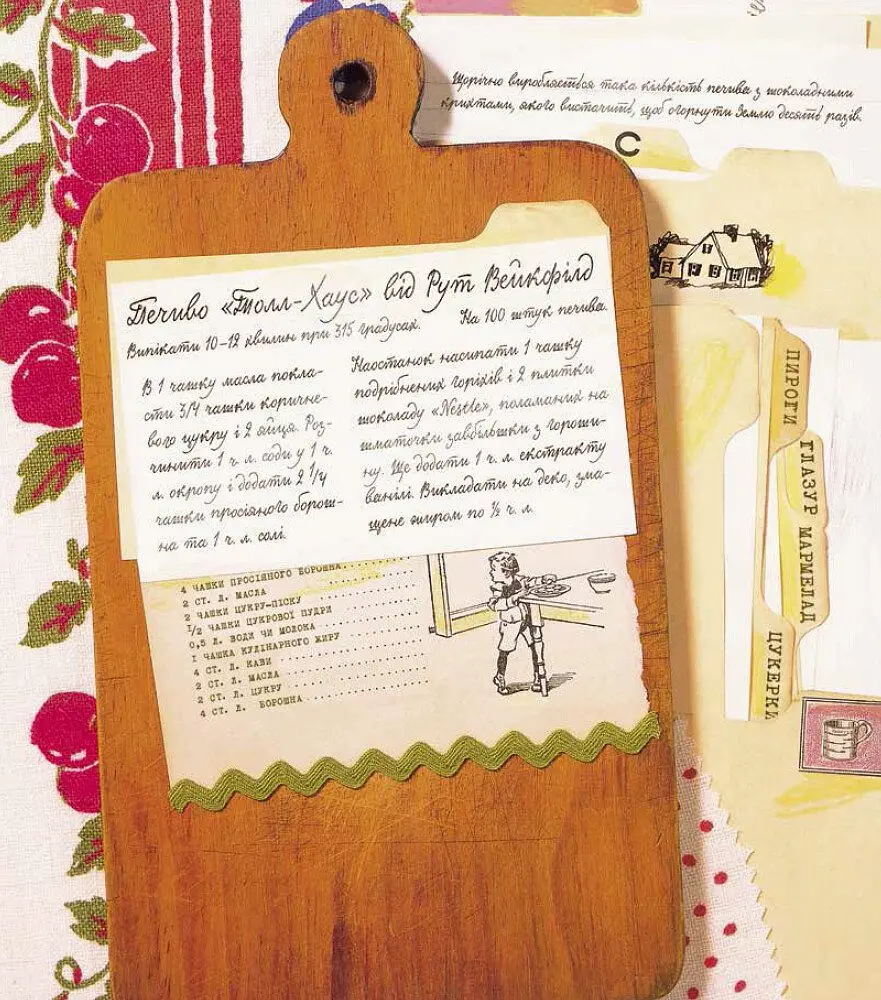 Щорічно виробляється така кількість печива з шоколадними
крихтами, якого вистачить, щоб огорнути Землю десять разів.
С
Печиво «Толл-Хаус» від Рут Вейкфілд
Випікати 10–12 хвилин при 315 градусах. На 100 штук печива.
В 1 чашку масла покла-
сти 3/4 чашки коричне-
вого цукру і 2 яйця. Роз-
чинити 1 ч. л. соди у 1 ч.
л. окропу і додати 2 1/4
чашки просіяного борош-
на та 1 ч. л. солі.
Наостанок насипати 1 чашку
подрібнених горіхів і 2 плитки
шоколаду «Nestle», поламаних на
шматочки завбільшки з горошин-
ну. Ще додати 1 ч. л. екстракту
ванілі. Викладати на деко, зма-
щене жиром по ½ ч. л.
4 ЧАШКИ ПРОСІЯНОГО БОРОШНА
2 СТ. Л. МАСЛА
2 ЧАШКИ ЦУКРУ-ПІСКУ
1/2 ЧАШКИ ЦУКРОВОЇ ПУДРИ
0,5 Л. ВОДИ ЧИ МОЛОКА
І ЧАШКА КУЛІНАРНОГО ЖИРУ
4 СТ. Л. КАВИ
2 СТ. Л. МАСЛА
2 СТ. Л. ЦУКРУ
4 СТ. Л. БОРОШНА
ПИРОГИ
ГЛАЗУР МАРМЕЛАД
ЦУКЕРКИ